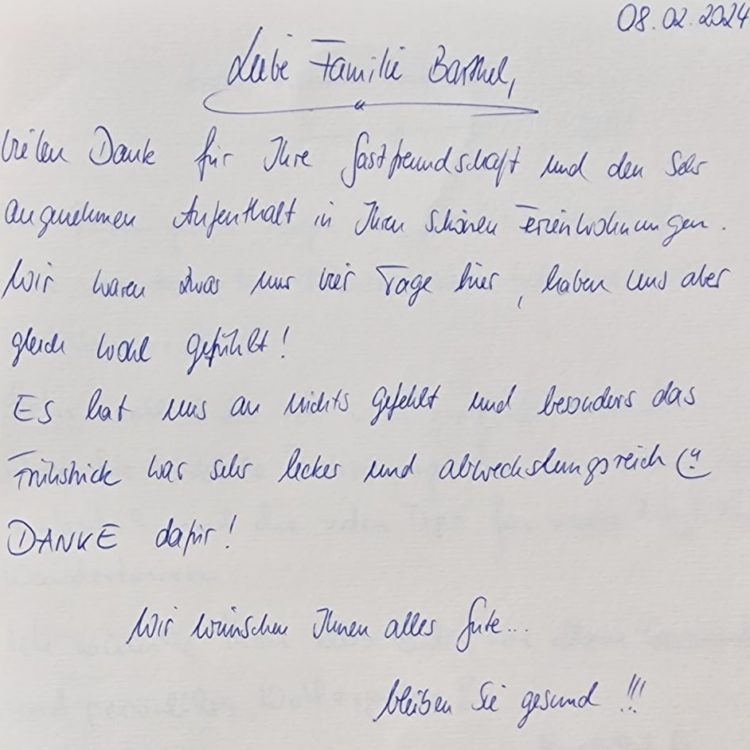 08.02.2024
Liebe Familie Barthel,
vielen Dank für Ihre Gastfreundschaft und den sehr
angenehmen Aufenthalt in Ihren schönen Ferienwohnungen.
Wir waren zwar nur vier Tage hier, haben uns aber
gleich wohl gefühlt!
Es hat uns an nichts gefehlt und besonders das
Frühstück war sehr lecker und abwechslungsreich
DANKE dafür!
Wir wünschen Ihnen alles Gute...
bleiben Sie gesund!!!